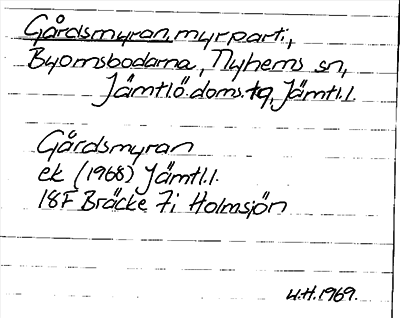 Gårdsmyran, myrparti,
Byomsbodarna, Nyhems sn,
Jämtl.ö.doms.tg, Jämtl.l.
Gårdsmyran
ek (1968) Jämtl.l.
18F Bräcke 7i Holmsjön
U.H.1969.